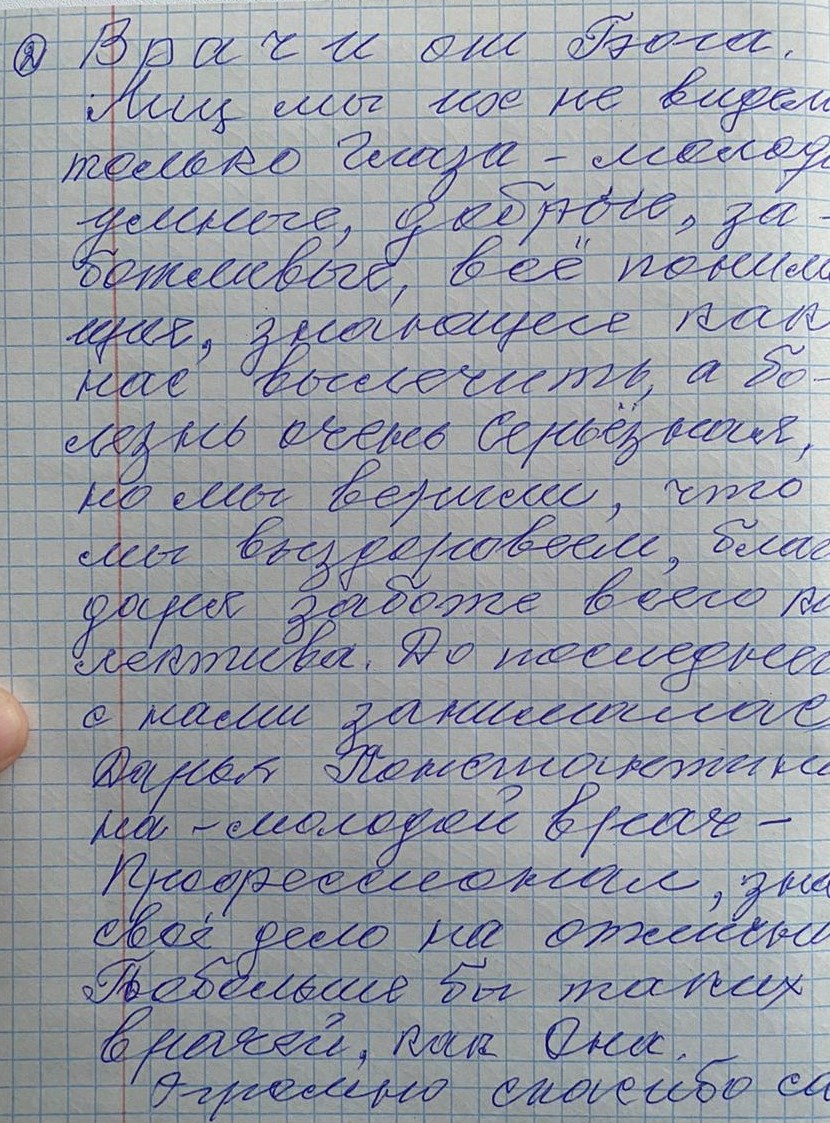 ② Врачи от Бога.
Лиц мы их не видели
только глаза - молоды
умные, добрые, за-
ботливые, всё понима
щие, знающие как
нас вылечить, а бо-
лезнь очень серьёзная,
но мы верили, что
мы выздоровеем, благ
даря заботе всего ко
лектива. До последнег
с нами занималас
Дарья Константин
на - молодой врач -
Профессионал, зна
своё дело на отличн
Побольше бы таких
врачей, как Она.
Огромно спасибо са